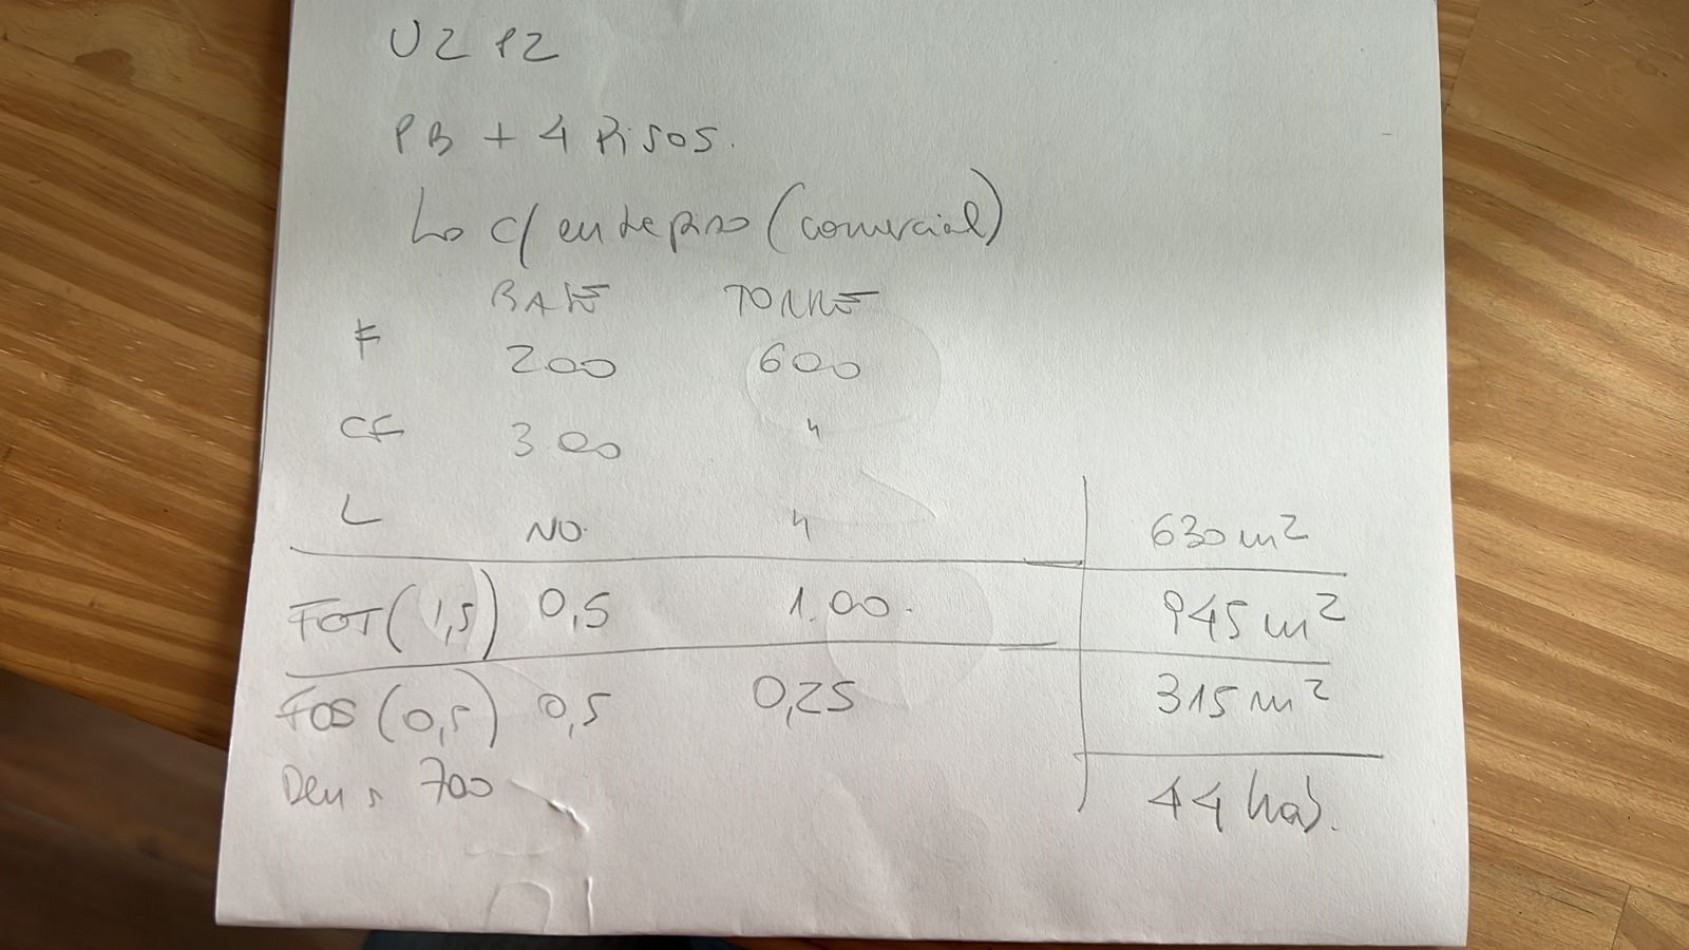 UZ 12
PB + 4 Pisos.
↳ c/ entrepiso (comercial)
BASE TORRE
F 200 600
CF 300 "
L NO. " 630 m²
FOT (1,5) 0,5 1.00. 945 m²
FOS (0,5) 0,5 0,25 315 m²
Dens 700 44 hab.